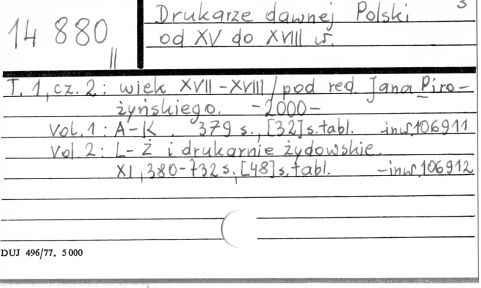 14 880
II
Drukarze dawnej Polski
od XV do XVIII w.
3
T. 1, cz. 2: wiek XVII-XVIII/pod red. Jana Piro-
żyńskiego. -2000-
Vol. 1: A-K. 379 s., [32]s.tabl. inw.106911
Vol 2: L-Ż i drukarnie żydowskie.
XI, 380-732 s., [48]s.tabl. -inw.106912
DUJ 496/77, 5 000